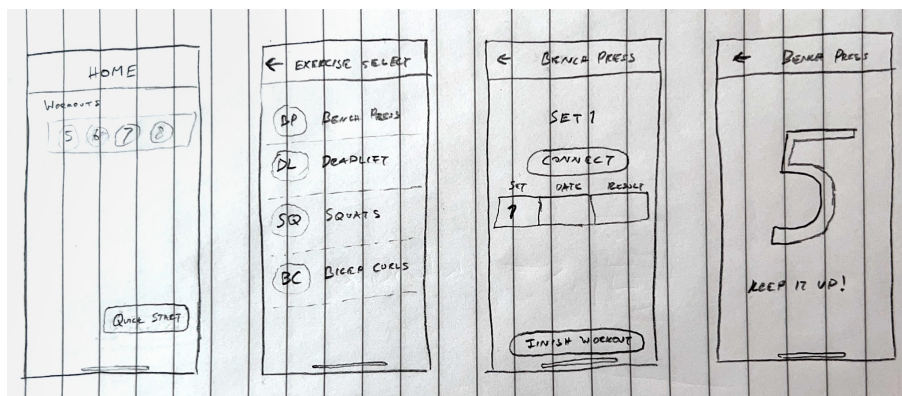 HOME
WORKOUTS
5 6 7 8
QUICK START
← EXERCISE SELECT
BP BENCH PRESS
DL DEADLIFT
SQ SQUATS
BC BICEP CURLS
← BENCH PRESS
SET 1
CONNECT
SET DATE RESULT
1
FINISH WORKOUT
← BENCH PRESS
5
KEEP IT UP!